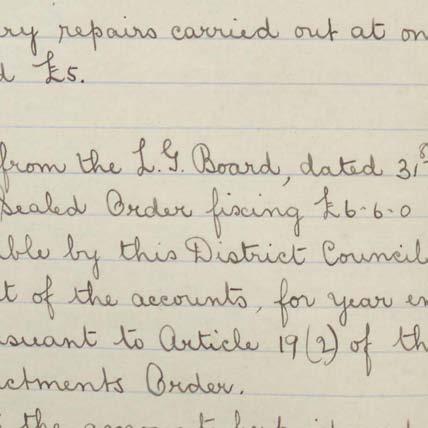 ry repairs carried out at on
d £5.
from the L.G. Board, dated 31s
Sealed Order fixing £6-6-0
ble by this District Council
t of the accounts, for year en
suant to Article 19(2) of th
ctments Order.
the amount